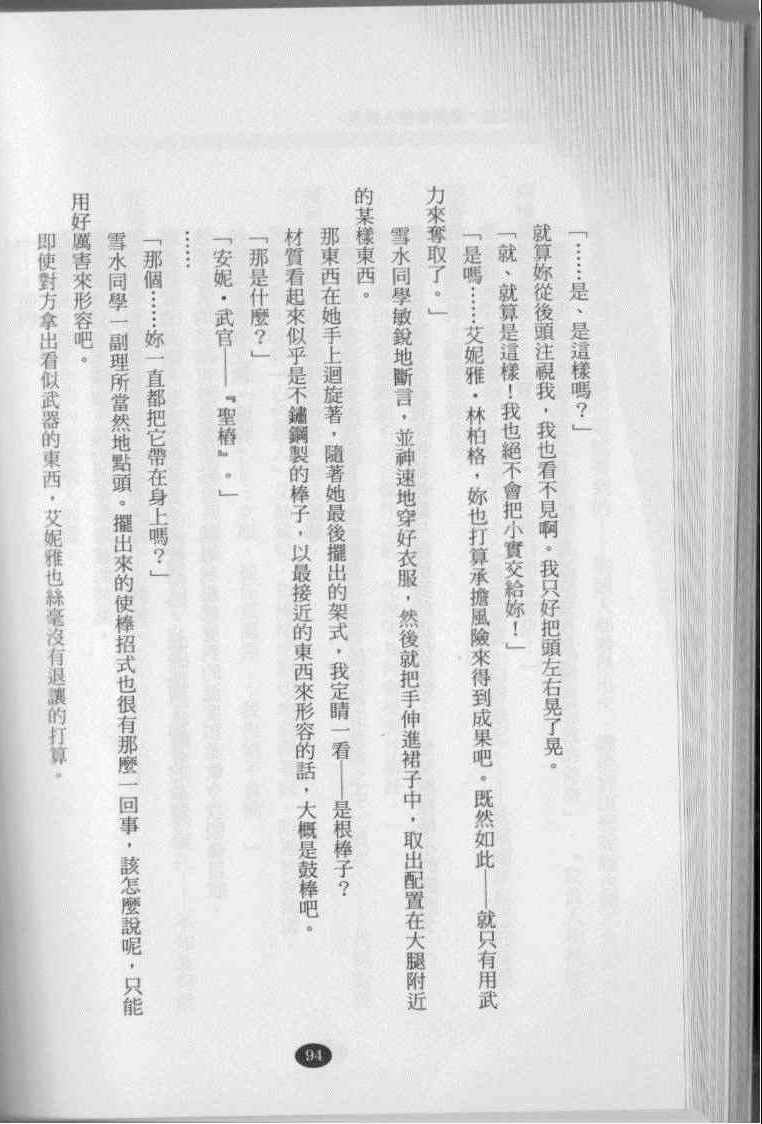 「……是、是這樣嗎？」
就算妳從後頭注視我，我也看不見啊。我只好把頭左右晃了晃。
「就、就算是這樣！我也絕不會把小實交給妳！」
「是嗎……艾妮雅・林柏格，妳也打算承擔風險來得到成果吧。既然如此——就只有用武
力來奪取了。」
雪水同學敏銳地斷言，並神速地穿好衣服，然後就把手伸進裙子中，取出配置在大腿附近
的某樣東西。
那東西在她手上迴旋著，隨著她最後擺出的架式，我定睛一看——是根棒子？
材質看起來似乎是不鏽鋼製的棒子，以最接近的東西來形容的話，大概是鼓棒吧。
「那是什麼？」
「安妮・武官——『聖樁』。」
……
「那個……妳一直都把它帶在身上嗎？」
雪水同學一副理所當然地點頭。擺出來的使棒招式也很有那麼一回事，該怎麼說呢，只能
用好厲害來形容吧。
即使對方拿出看似武器的東西，艾妮雅也絲毫沒有退讓的打算。
94